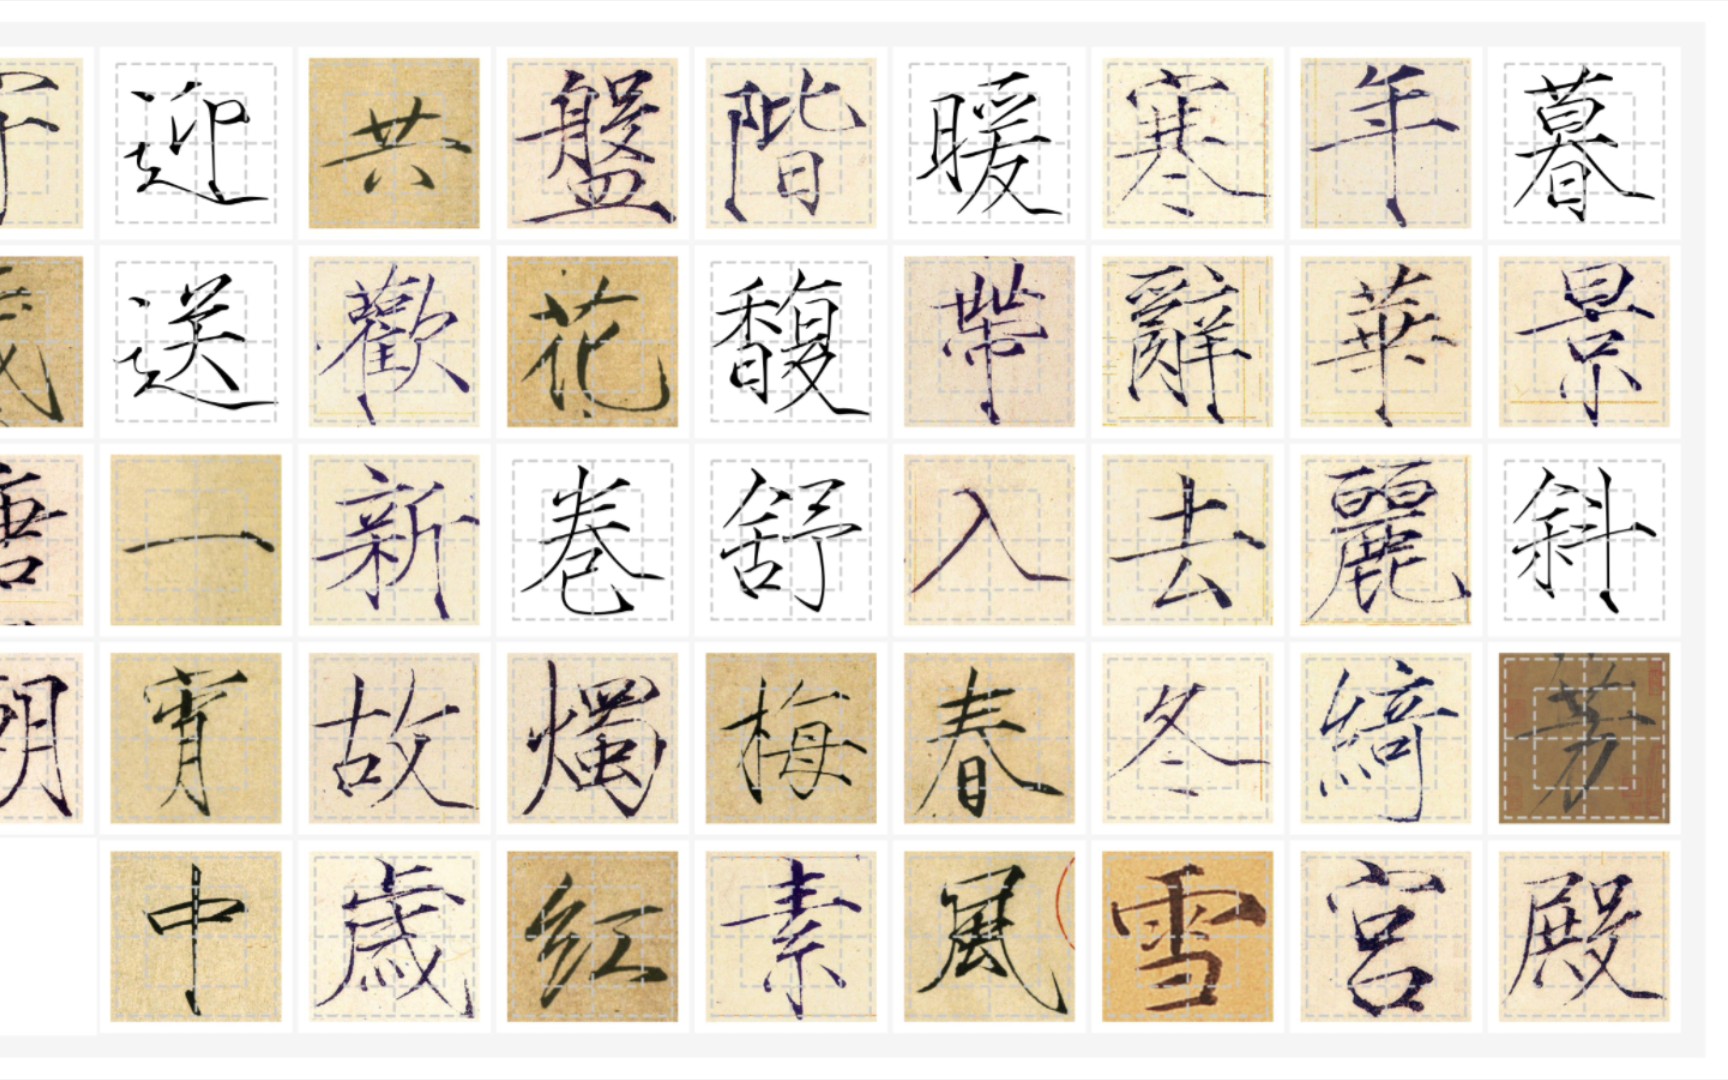 暮景斜芳殿
年華麗綺宮
寒辭去冬雪
暖帶入春風
階馥舒梅素
盤花卷燭紅
共歡新故歲
迎送一宵中
守歲唐朝